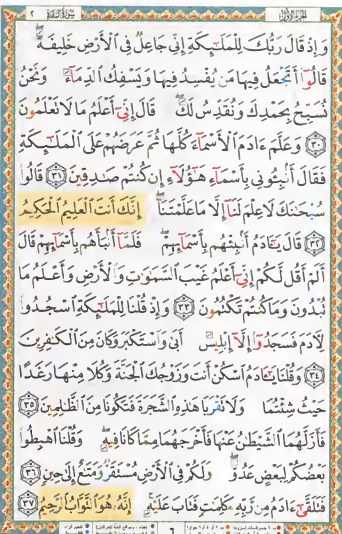 سورة البقرة ٢
وَإِذْ قَالَ رَبُّكَ لِلْمَلَٰٓئِكَةِ إِنِّى جَاعِلٌ فِى ٱلْأَرْضِ خَلِيفَةً
قَالُوٓا۟ أَتَجْعَلُ فِيهَا مَن يُفْسِدُ فِيهَا وَيَسْفِكُ ٱلدِّمَآءَ وَنَحْنُ
نُسَبِّحُ بِحَمْدِكَ وَنُقَدِّسُ لَكَ قَالَ إِنِّىٓ أَعْلَمُ مَا لَا تَعْلَمُونَ
٣٠ وَعَلَّمَ ءَادَمَ ٱلْأَسْمَآءَ كُلَّهَا ثُمَّ عَرَضَهُمْ عَلَى ٱلْمَلَٰٓئِكَةِ
فَقَالَ أَنۢبِـُٔونِى بِأَسْمَآءِ هَٰٓؤُلَآءِ إِن كُنتُمْ صَٰدِقِينَ ٣١ قَالُوا۟
سُبْحَٰنَكَ لَا عِلْمَ لَنَآ إِلَّا مَا عَلَّمْتَنَآ إِنَّكَ أَنتَ ٱلْعَلِيمُ ٱلْحَكِيمُ
٣٢ قَالَ يَٰٓـَٔادَمُ أَنۢبِئْهُم بِأَسْمَآئِهِمْ فَلَمَّآ أَنۢبَأَهُم بِأَسْمَآئِهِمْ قَالَ
أَلَمْ أَقُل لَّكُمْ إِنِّىٓ أَعْلَمُ غَيْبَ ٱلسَّمَٰوَٰتِ وَٱلْأَرْضِ وَأَعْلَمُ مَا
تُبْدُونَ وَمَا كُنتُمْ تَكْتُمُونَ ٣٣ وَإِذْ قُلْنَا لِلْمَلَٰٓئِكَةِ ٱسْجُدُوا۟
لِـَٔادَمَ فَسَجَدُوٓا۟ إِلَّآ إِبْلِيسَ أَبَىٰ وَٱسْتَكْبَرَ وَكَانَ مِنَ ٱلْكَٰفِرِينَ
٣٤ وَقُلْنَا يَٰٓـَٔادَمُ ٱسْكُنْ أَنتَ وَزَوْجُكَ ٱلْجَنَّةَ وَكُلَا مِنْهَا رَغَدًا
حَيْثُ شِئْتُمَا وَلَا تَقْرَبَا هَٰذِهِ ٱلشَّجَرَةَ فَتَكُونَا مِنَ ٱلظَّٰلِمِينَ ٣٥
فَأَزَلَّهُمَا ٱلشَّيْطَٰنُ عَنْهَا فَأَخْرَجَهُمَا مِمَّا كَانَا فِيهِ وَقُلْنَا ٱهْبِطُوا۟
بَعْضُكُمْ لِبَعْضٍ عَدُوٌّ وَلَكُمْ فِى ٱلْأَرْضِ مُسْتَقَرٌّ وَمَتَٰعٌ إِلَىٰ حِينٍ ٣٦
فَتَلَقَّىٰٓ ءَادَمُ مِن رَّبِّهِۦ كَلِمَٰتٍ فَتَابَ عَلَيْهِ إِنَّهُۥ هُوَ ٱلتَّوَّابُ ٱلرَّحِيمُ ٣٧
٦